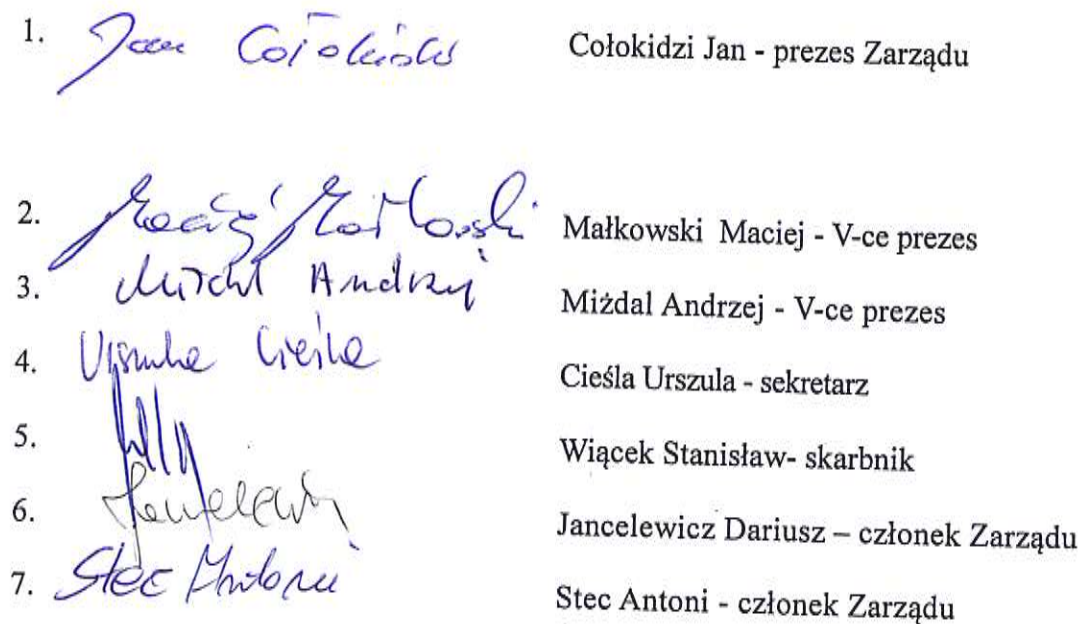 1. Jan Cołokidzi Cołokidzi Jan - prezes Zarządu
2. Maciej Małkowski Małkowski Maciej - V-ce prezes
3. Miżdal Andrzej Miżdal Andrzej - V-ce prezes
4. Urszula Cieśla Cieśla Urszula - sekretarz
5. Wiącek Stanisław- skarbnik
6. Jancelewicz Dariusz – członek Zarządu
7. Stec Antoni Stec Antoni - członek Zarządu